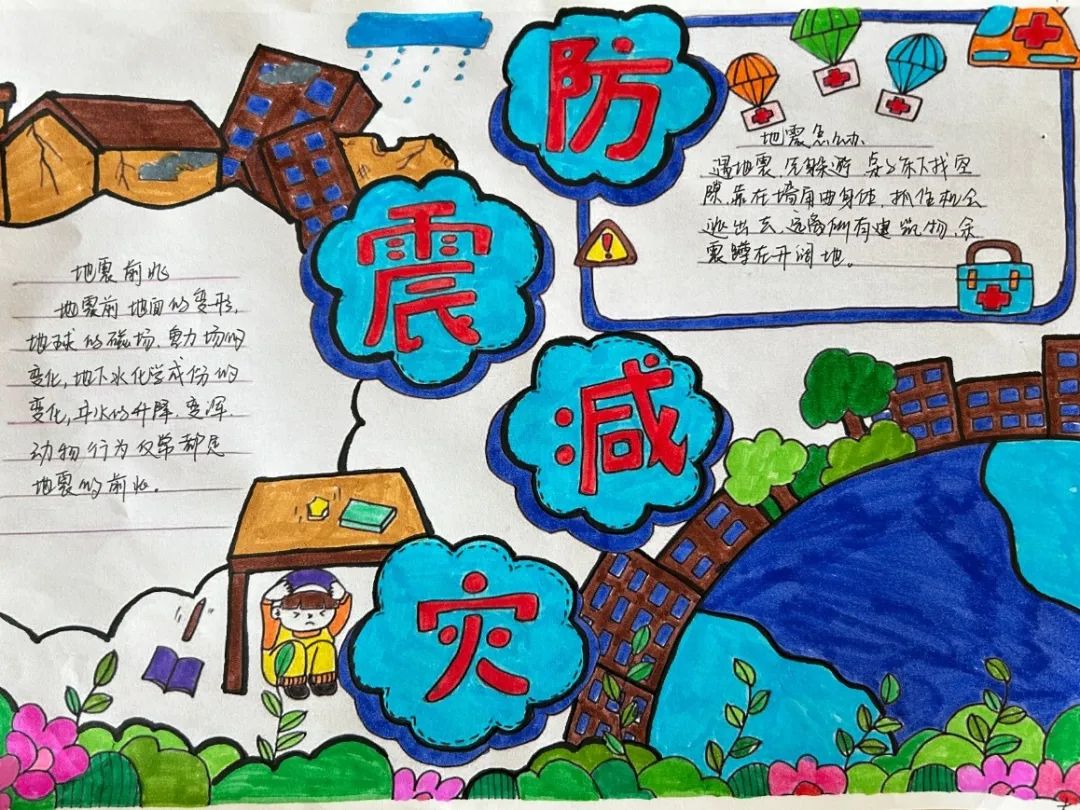 防
震
减
灾
地震怎么办
遇地震,先躲避,桌子底下找空
隙,靠在墙角曲身体,抓住机会
逃出去,远离所有建筑物,余
震蹲在开阔地。
地震前兆
地震前地面的变形,
地球的磁场、重力场的
变化,地下水化学成份的
变化,井水的升降、变浑,
动物行为反常都是
地震的前兆。